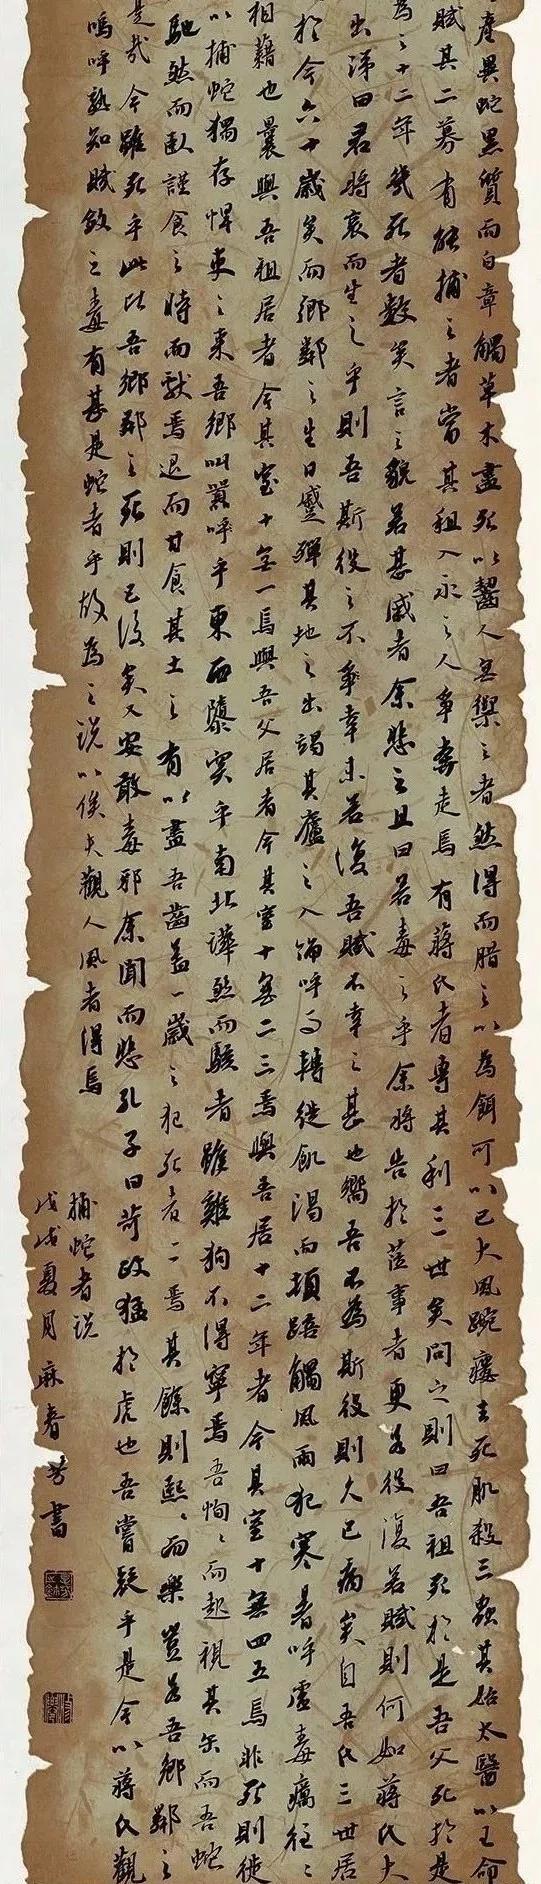 產異蛇黑質而白章觸草木盡死以齧人無禦之者然得而腊之以為餌可以已大風踠瘻去死肌殺三蟲其始太醫以王命
賦其二募有能捕之者當其租入永之人爭奔走焉有蔣氏者專其利三世矣問之則曰吾祖死於是吾父死於是
為之十二年幾死者數矣言之貌若甚慼者余悲之且曰若毒之乎余將告於蒞事者更若役復若賦則何如蔣氏大
出涕曰君將哀而生之乎則吾斯役之不幸未若復吾賦不幸之甚也嚮吾不為斯役則久已病矣自吾氏三世居
於今六十歲矣而鄉鄰之生日蹙殫其地之出竭其廬之入號呼而轉徙飢渴而頓踣觸風雨犯寒暑呼噓毒癘往往
相藉也曩與吾祖居者今其室十無一焉與吾父居者今其室十無二三焉與吾居十二年者今其室十無四五焉非死則徙
以捕蛇獨存悍吏之來吾鄉叫囂呼乎東西隳突乎南北譁然而駭者雖雞狗不得寧焉吾恂恂而起視其缶而吾蛇
馳然而臥謹食之時而獻焉退而甘食其土之有以盡吾齒蓋一歲之犯死者二焉其餘則熙熙而樂豈若吾鄉鄰之
是哉今雖死乎此比吾鄉鄰之死則已後矣又安敢毒邪余聞而悲孔子曰苛政猛於虎也吾嘗疑乎是今以蔣氏觀
嗚呼孰知賦斂之毒有甚是蛇者乎故為之說以俟夫觀人風者得焉
捕蛇者説
戊戌夏月麻春芳書